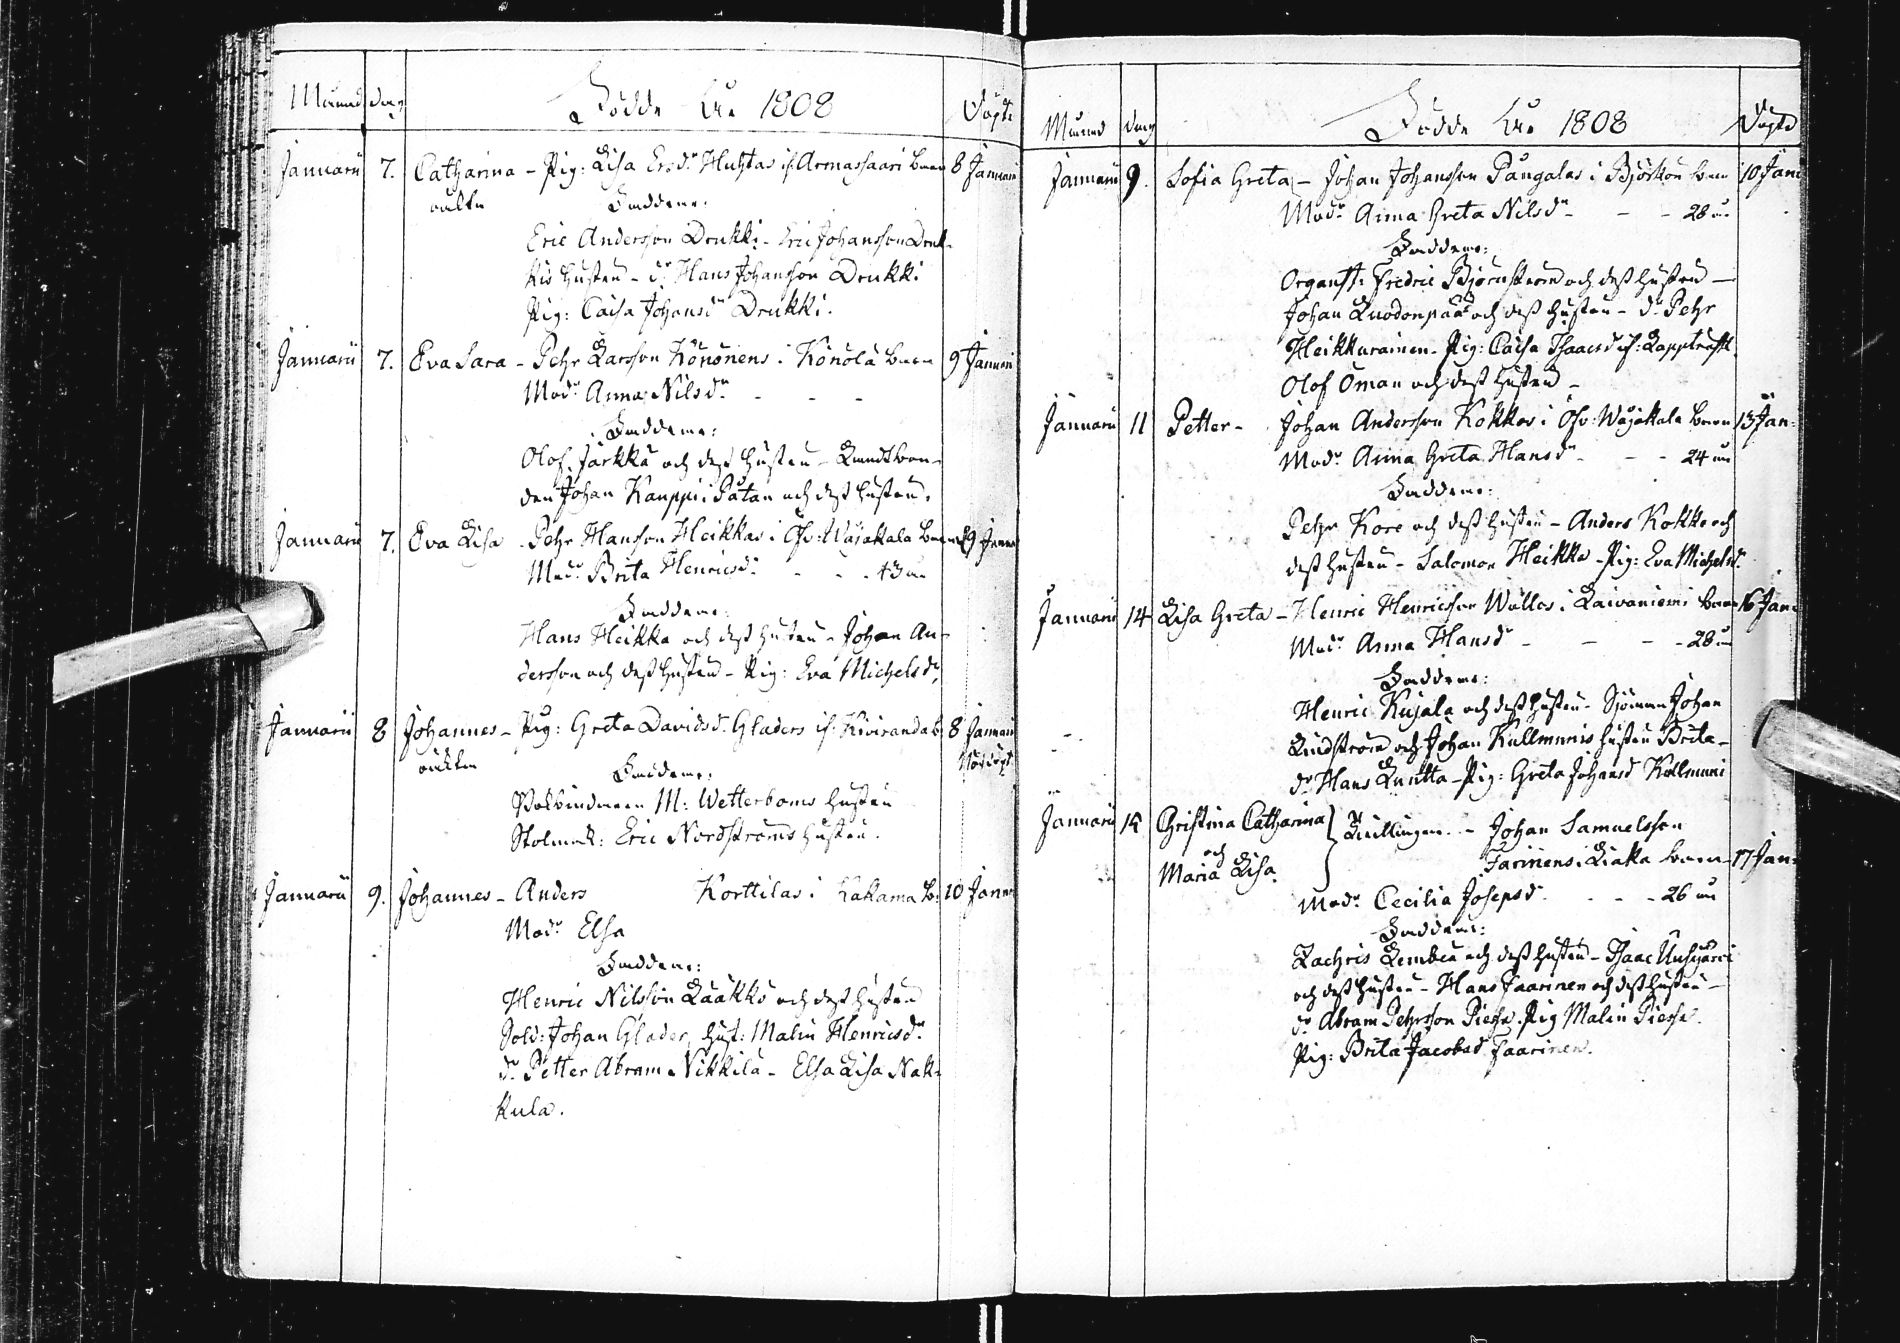 Månad dag Födde År 1808 Döpte
Januarii 7. Catharina – Pig: Lisa Ersdr Huhtas if: Armassaari barn 8 Januari
oäkta Faddrar:
Eric Andersson Drukki – Eric Johansson Druk-
kis hustru – dr. Hans Johansson Drukki
Pig: Caisa Johansdr Drukki.
Januarii 7. Eva Sara – Pehr Larsson Könönens i Könölä barn 9 Januari
Modr Anna Nilsdr - - -
Faddrar:
Olof Jarkkä och dess hustru –
den Johan Kauppi i Påtan och dess hustru.
Januarii 7. Eva Lisa – Pehr Hansson Heikkas i Öfv: Wojakkala barn 9 Janua
Modr Brita Henricsdr - - - 43 år
Faddrar:
Hans Heikka och dess hustru – Johan An-
dersson och dess hustru – Pig: Eva Michelsdr,
Januarii 8 Johannes – Pig: Greta Davidsdr Gladers if: Kiviranda b: 8 Januari
oäkta Nöddöpt
Faddrar:
Bokbindaren M: Wetterboms hustru
Stolmak: Eric Nordströms hustru.
Januarii 9. Johannes – Anders Korttilas i Kakama b: 10 Janua
Modr Elsa
Faddrar:
Henric Nilsson Laakko och dess hustru
Sold: Johan Glader, hust: Malin Henricsdr
dr. Petter Abram Nikkilä – Elsa Lisa Nak-
kula.
Månad dag Födde År 1808 Döpte
Januarii 9. Sofia Greta – Johan Johansson Pangalas i Björkön barn 10 Janu
Modr Anna Greta Nilsdr - - - 28 år
Faddrar:
Organist: Fredric Björnström och dess hustru –
Johan Luodonpää och dess hustru – dr. Pehr
Heikkurainen – Pig: Caisa Isaacsdr if:
Olof Öman och dess hustru –
Januarii 11 Petter – Johan Andersson Kokkos i Öfv: Wojakkala barn 13 Jan:
Modr Anna Greta Hansdr - - - 24 år
Faddrar:
Pehr Kore och dess hustru – Anders Kokko och
dess hustru – Salomon Heikka – Pig: Eva Michelsdr.
Januarii 14 Lisa Greta – Henric Henricsson Wallos i Laivaniemi barn 16 Jan:
Modr Anna Hansdr - - - 28 år
Faddrar:
Henric Kujala och dess hustru – Sjöman Johan
Lindström och Johan Kullmunis hustru Brita –
dr. Hans Luutta – Pig: Greta Johansdr Kullmuni
Januarii 15 Christina Catharina } Tvillingar. – Johan Samuelsson
och Farinens i Liakka barn – 17 Jan:
Maria Lisa.
Modr Cecilia Josepsdr - - - 26 år
Faddrar:
Zachris Lembea och dess hustru – Isaac Uusijärvi
och dess hustru – Hans Faarinen och dess hustru –
dr. Abram Pehrsson Pieska. Pig Malin Pieska.
Pig: Brita Jacobsdr Faarinen.